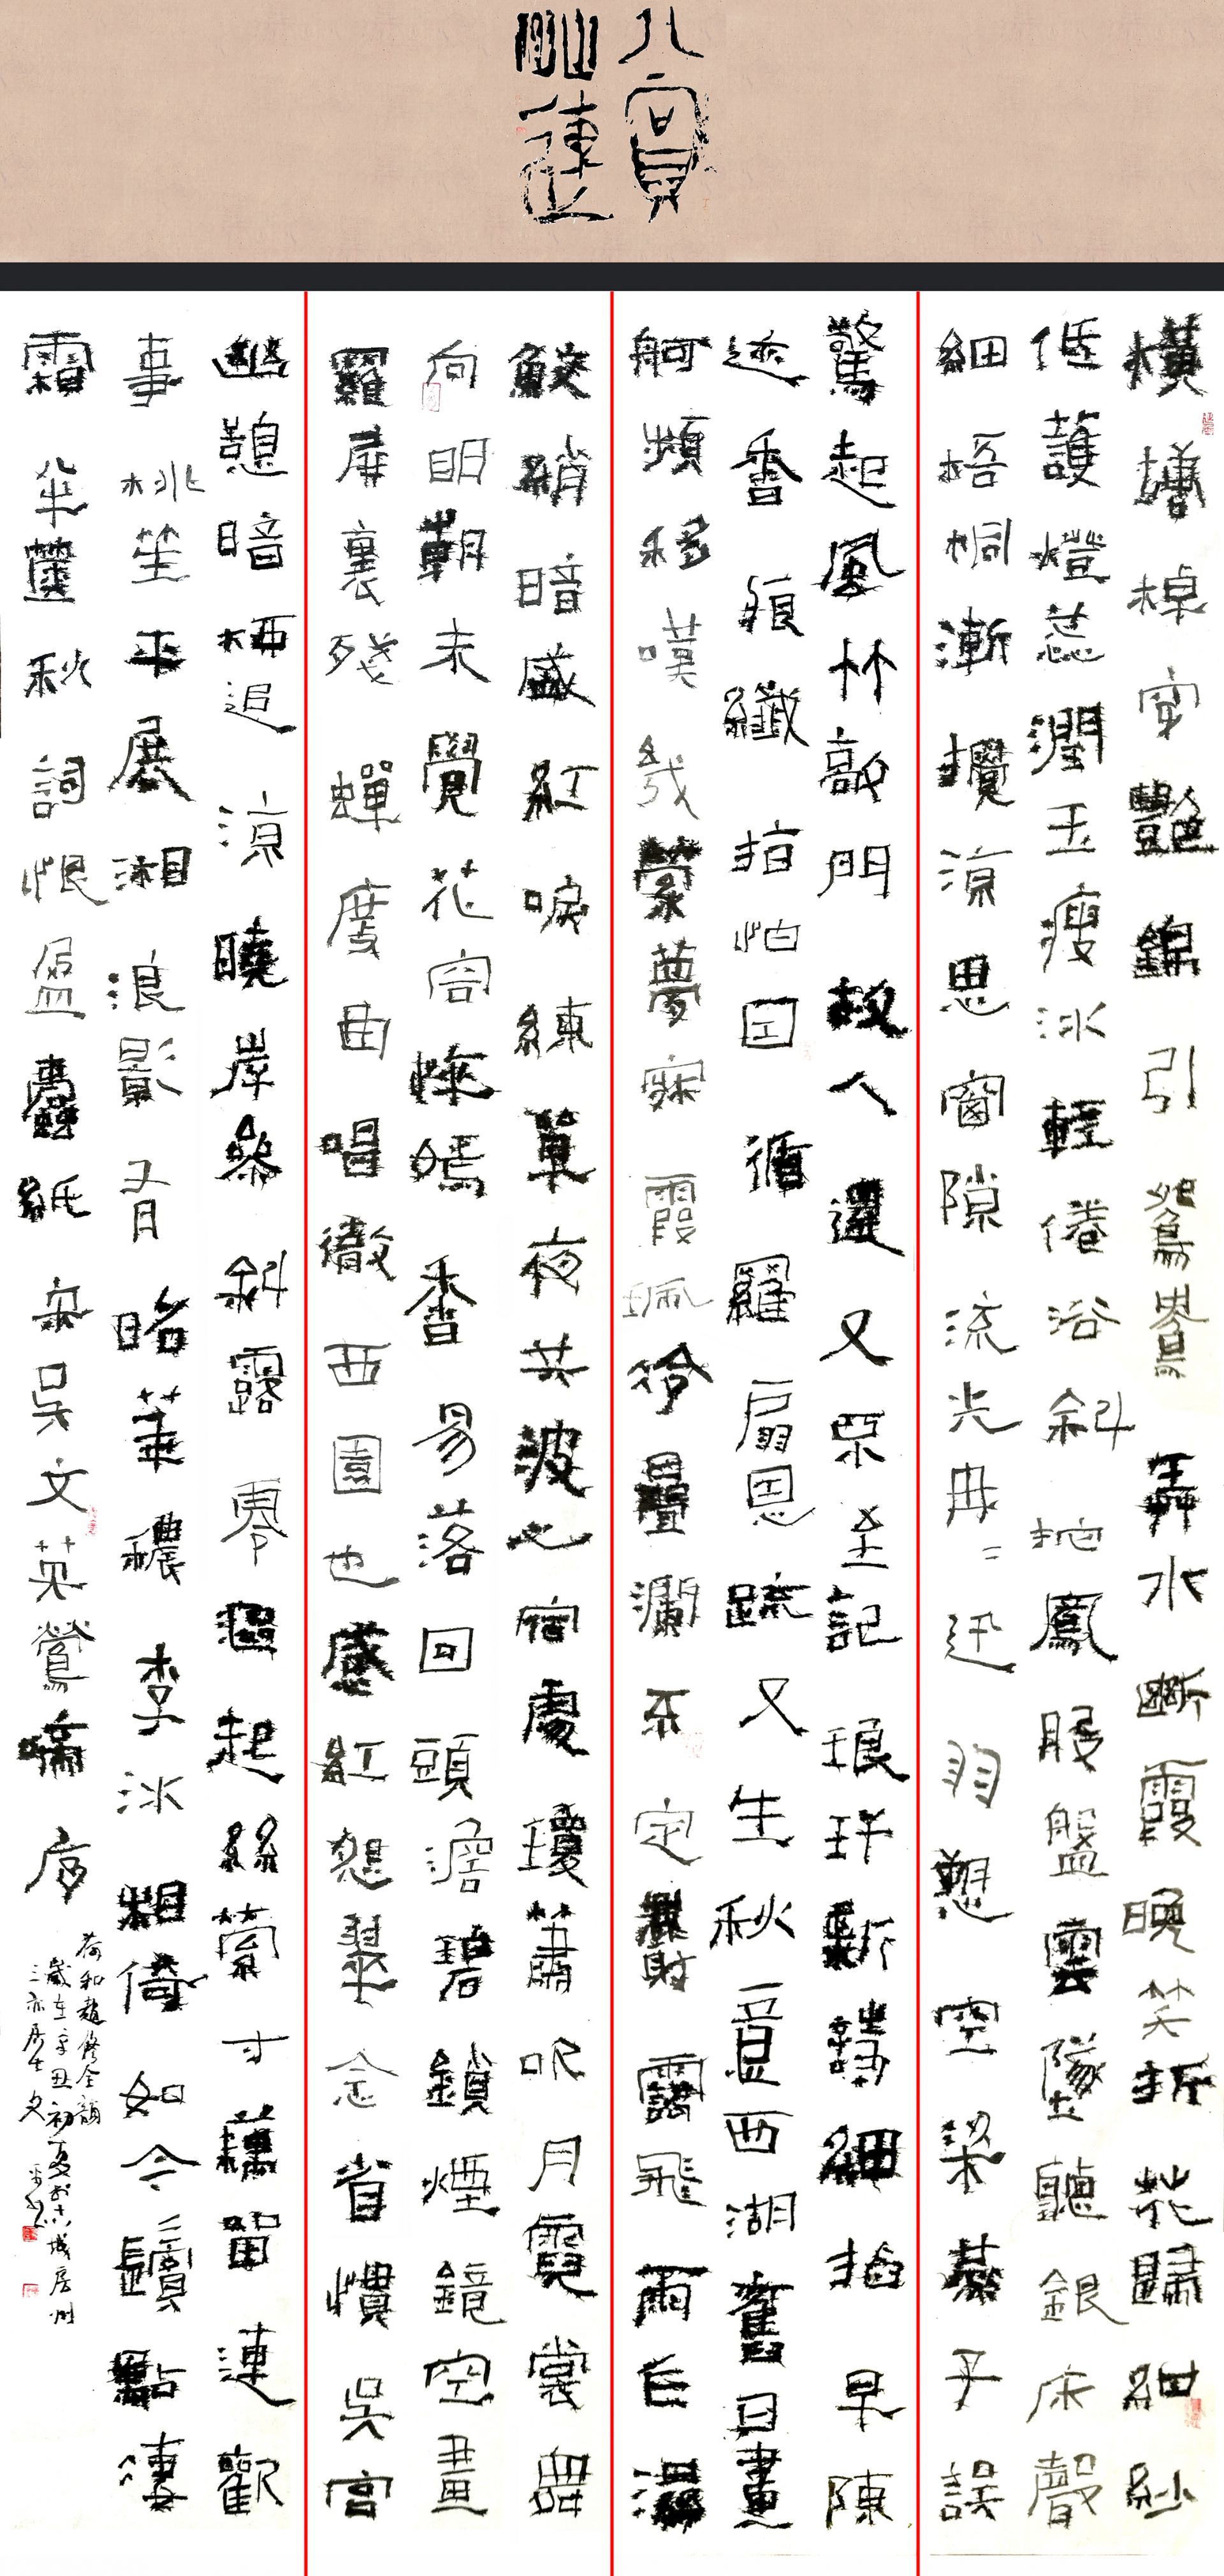 八寶
橫塘棹穿艷錦引鴛鴦弄水斷霞晚笑折花歸紺紗
低護燈蕊潤玉瘦冰輕倦浴斜拕鳳股盤雲墜聽銀床聲
細梧桐漸攪涼思窗隙流光冉冉迅羽愬空梁燕子誤
驚起風竹敲門故人還又不至記琅玕新詩細掐早陳
迹香痕纖指怕因循羅扇恩疏又生秋意西湖舊日畫
舸頻移嘆幾縈夢寐霞珮冷疊瀾不定麝靄飛雨乍濕
鮫綃暗盛紅淚練單夜共波心宿處瓊簫吹月霓裳舞
向明朝未覺花容悴嫣香易落回頭澹碧鎖煙鏡空畫
羅屏裏殘蟬度曲唱徹西園也感紅怨翠念省慣吳宮
幽憩暗柳追涼曉岸參斜露零漚起絲縈寸藕留連歡
事桃笙平展湘浪影有昭華穠李冰相倚如今鬢點淒
霜半篋秋詞恨盈蠹紙 宋吳文英鶯啼序
荷和趙修全韻
歲在辛丑初夏於十六城房州
三亦居士